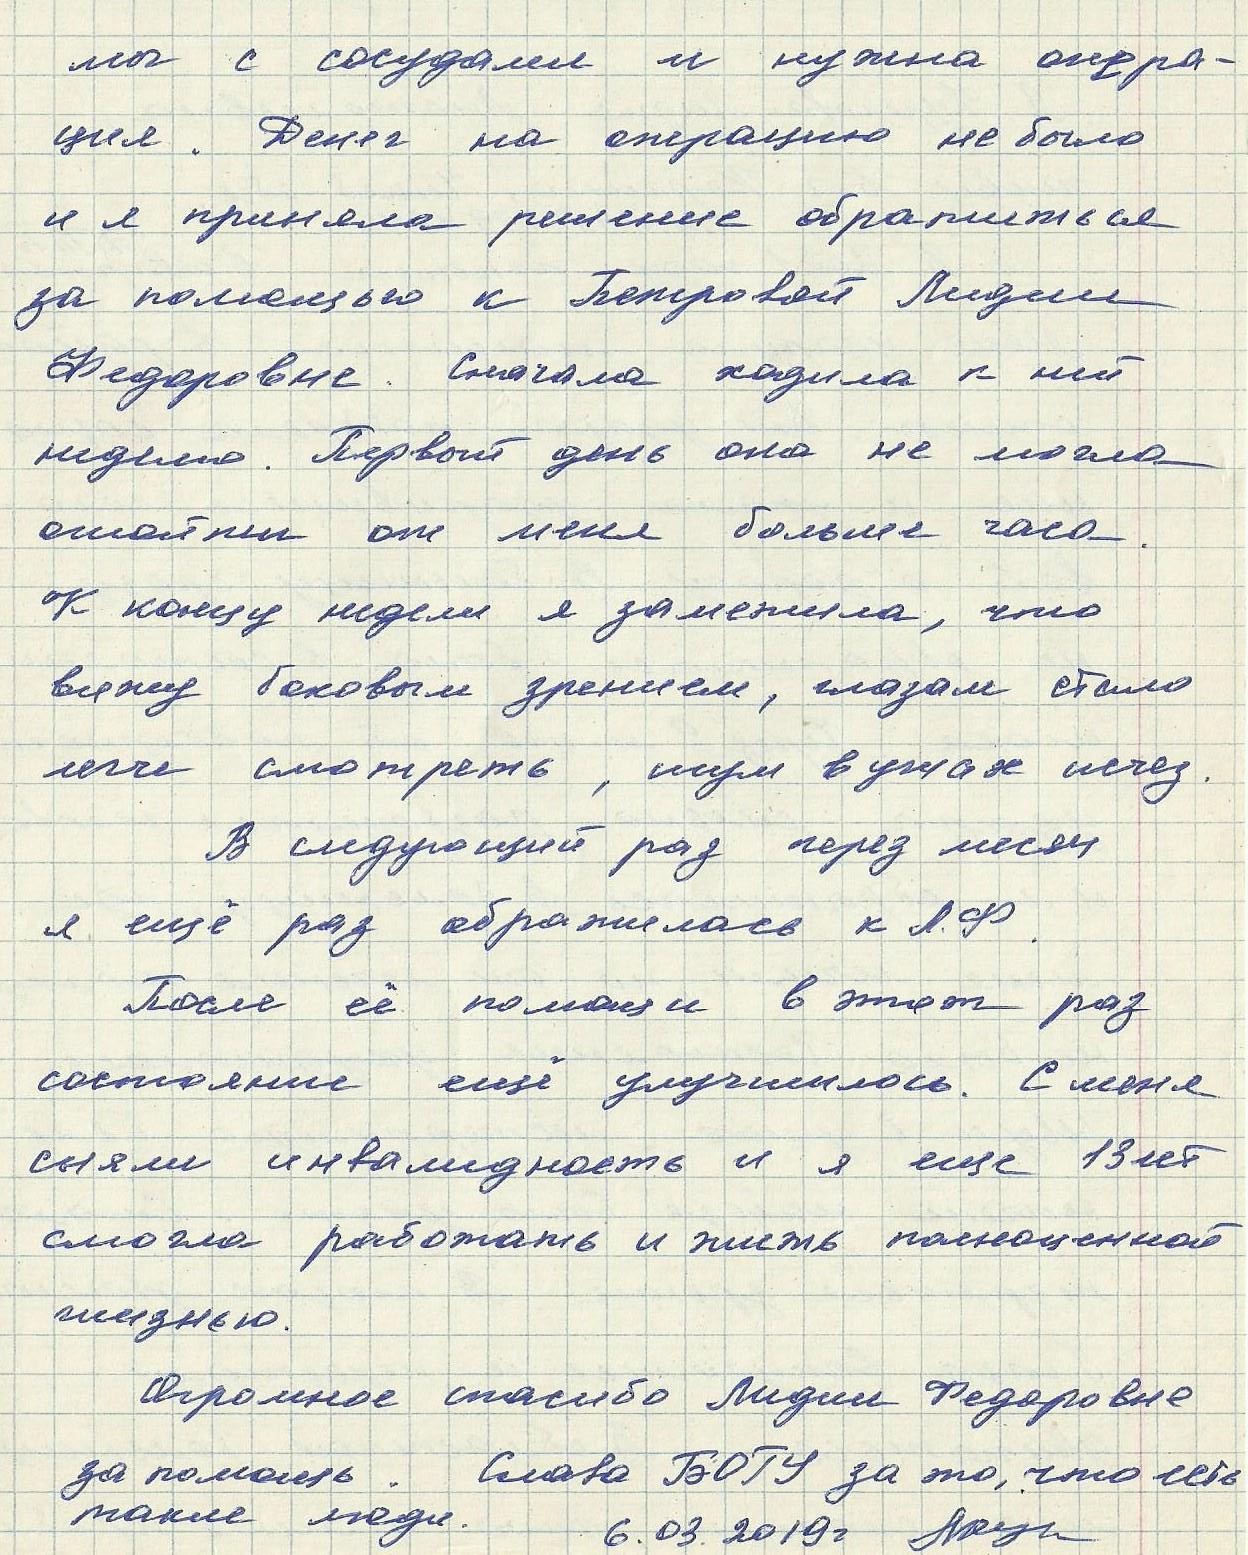 мы с сосудами и нужна опера-
ция. Денег на операцию не было
и я приняла решение обратиться
за помощью к Петровой Лидии
Федоровне. Сначала ходила к ней
неделю. Первый день она не могла
отойти от меня больше часа.
К концу недели я заметила, что
вижу боковым зрением, глазам стало
легче смотреть, шум в ушах исчез.
В следующий раз через месяц
я ещё раз обратилась к Л.Ф.
После её помощи в этот раз
состояние ещё улучшилось. С меня
сняли инвалидность и я еще 13 лет
смогла работать и жить полноценной
жизнью.
Огромное спасибо Лидии Федоровне
за помощь. Слава БОГУ за то, что есть
такие люди.
6.03.2019г